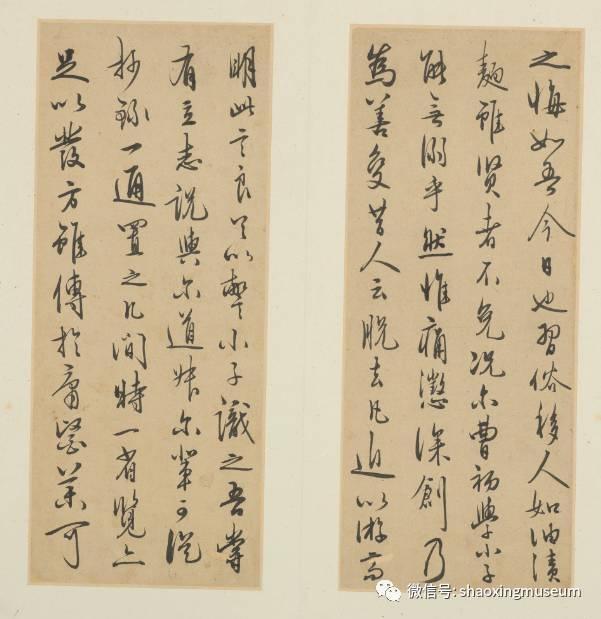 之悔如吾今日也習俗移人如油漬
麵雖賢者不免況尔曹初學小子
能無溺乎然惟痛懲深創乃
為善變昔人云脫去凡近以游高
明此言良足以警小子識之吾嘗
有立志說與尔道叔尔輩可從
抄錄一通置之几間時一省覽亦
足以發方雖傳於庸醫藥可
微信号: shaoxingmuseum